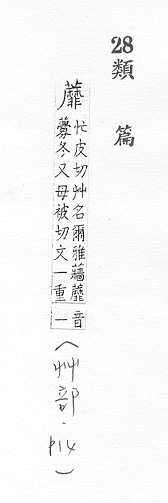 28
類篇
蘼
忙皮切艸名爾雅蘠蘼
虋冬又母被切文一重音一
(艸部.P14)